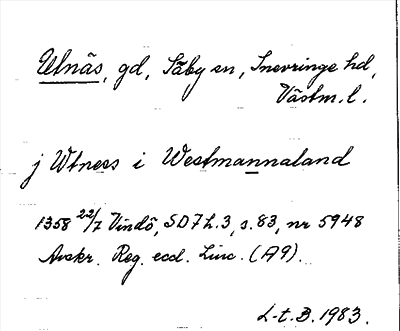 Utnäs, gd, Säby sn, Snevringe hd,
Västm. l.
j Wtness i Westmannaland
1358 22/7 Vindö, SD7h.3, s.83, nr 5948
Avskr. Reg. eccl. Linc. (A9).
L-t.B. 1983.